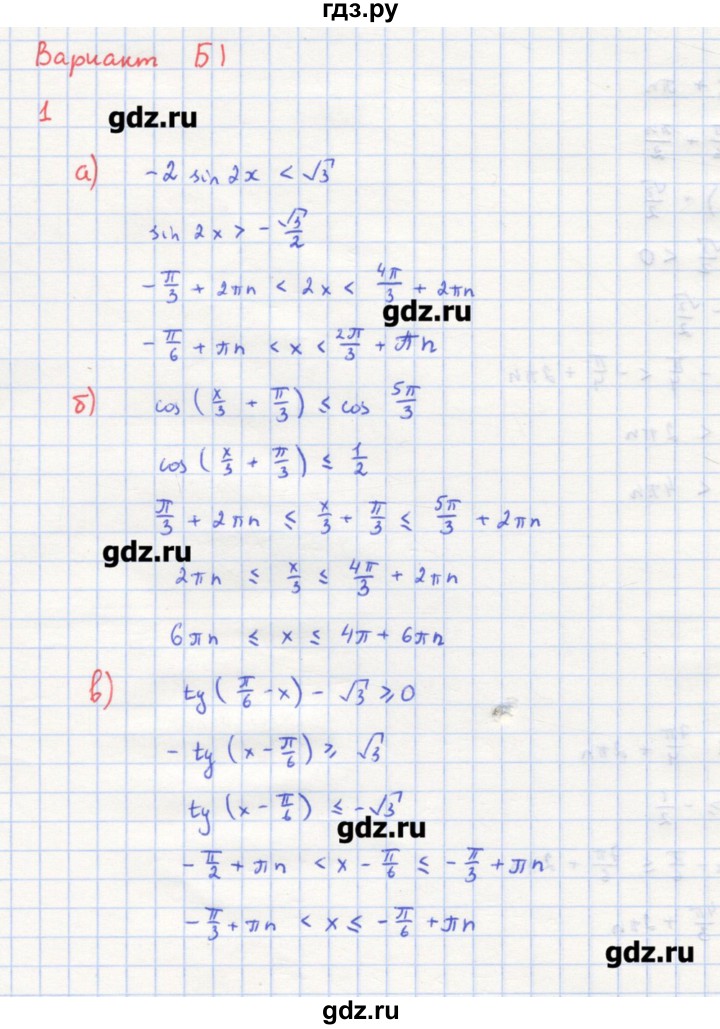 гдз.ру
Вариант Б1
1 gdz.ru
а) -2 sin 2x < √3
sin 2x > -√3/2
-π/3 + 2πn < 2x < 4π/3 + 2πn
gdz.ru
-π/6 + πn < x < 2π/3 + πn
б) cos (x/3 + π/3) ≤ cos 5π/3
cos (x/3 + π/3) ≤ 1/2
π/3 + 2πn ≤ x/3 + π/3 ≤ 5π/3 + 2πn
gdz.ru
2πn ≤ x/3 ≤ 4π/3 + 2πn
6πn ≤ x ≤ 4π + 6πn
в) tg (π/6 - x) - √3 ≥ 0
- tg (x - π/6) ≥ √3
tg (x - π/6) ≤ -√3
gdz.ru
-π/2 + πn < x - π/6 ≤ -π/3 + πn
-π/3 + πn < x ≤ -π/6 + πn
gdz.ru
gdz.ru